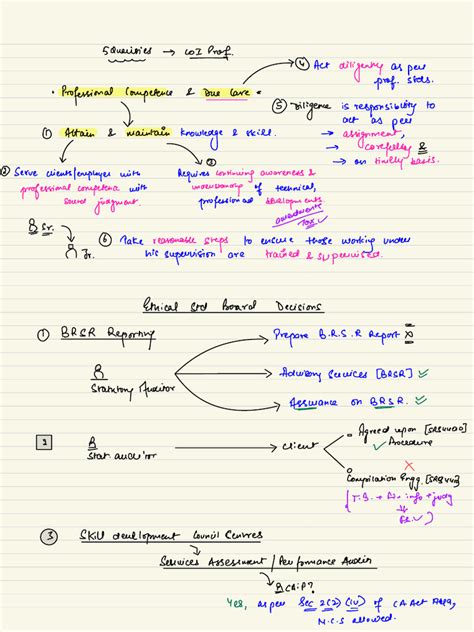 5 Qualities → COI Prof.
• Professional Competence & Due Care •
④ Act diligently as per
prof. stds.
⑤ Diligence is responsibility to
act as per
→ assignment,
→ carefully &
→ on timely basis.
① Attain & maintain knowledge & skill.
② Serve clients/employer with
professional competence with
sound judgment.
③
Requires continuing awareness &
understanding of technical,
professional developments
amendments
Tax ✓
Sr.
Jr.
⑥ Take reasonable steps to ensure those working under
his supervision are trained & supervised.
Ethical Std Board Decisions
① BRSR Reporting
Statutory Auditor
Prepare B.R.S.R Report
Advisory Services [BRSR] ✓
Assurance on BRSR. ✓
2
Stat. auditor
→ Client
Agreed upon
✓ Procedure
✗
Compilation Engg.
(T.B. + Fin. info +
FS. ✓)
③ Skill development Council Centres
Services Assessment / Performance Audit
CA in P?
Yes, as per Sec 2(2) (iv) of CA Act
N.C.S allowed.